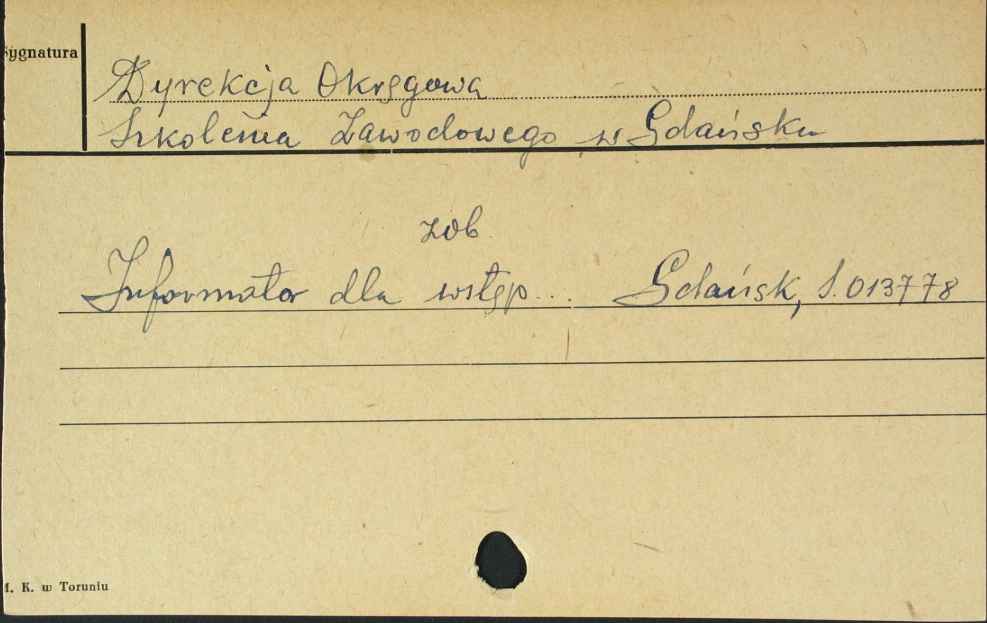 Sygnatura
Dyrekcja Okręgowa
Szkolenia Zawodowego w Gdańsku
zob
Informator dla wstęp... Gdańsk, S.013778
M. K. w Toruniu